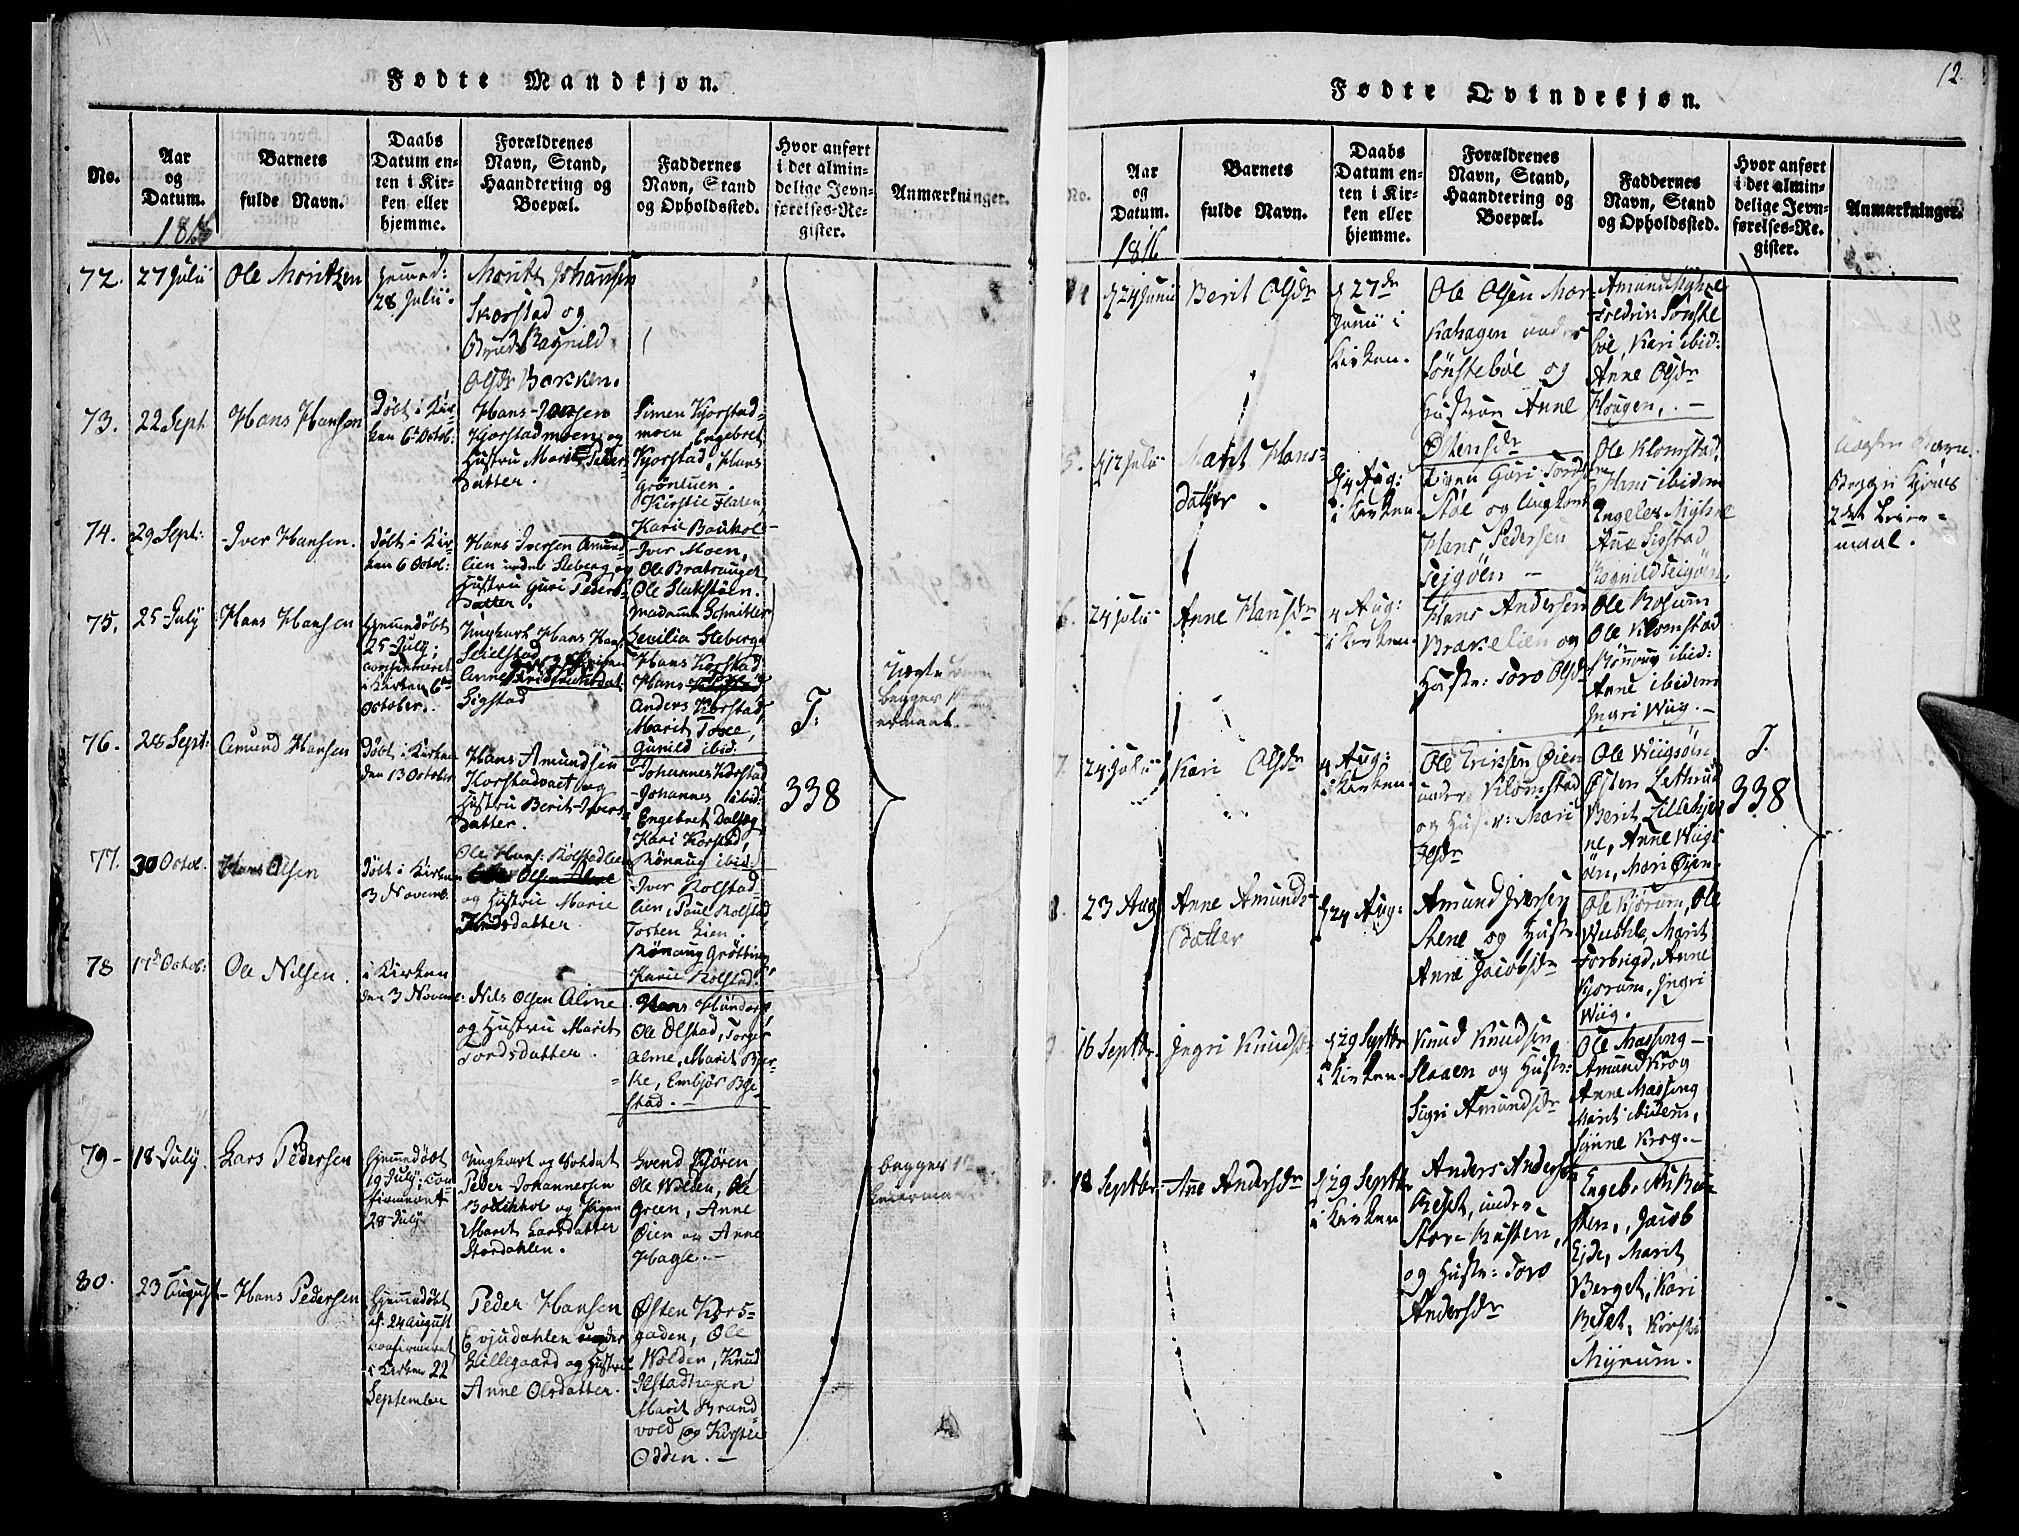 Fødte Mandkjøn.
No.
Aar
og
Datum.
1816
Barnets
fulde Navn.
Daabs
Datum en-
ten i Kir-
ken eller
hjemme.
Forældrenes
Navn, Stand,
Haandtering og
Boepæl.
Faddernes
Navn, Stand
og Opholdssted.
Hvor anført
i det almin-
delige Jevn-
førelses-Re-
gister.
Anmærkninger.
72.
27 Julii
Ole Moritzen
28 Julii.
Moritz Johansen
Skorstad og
Ragnild
Olsdr Bakken.
73.
22 Sept
Hans Hansen
Døbt i Kir-
ken 6te Octob:
Hans Jensen
Kjorstadmoen og
Hustru Marie Peders
datter.
Simen Kjorstad-
moen, Engebret
Kjorstad, Hans
Grønluen.
Kirstie Flaten
Karie Bauhol-
74.
29 Sept:
Iver Hansen.
Døbt i Kir-
ken 6 Octob:
Hans Iversen Amund-
lien under Steberg og
Hustru Guri Peders
datter.
Iver Moen,
Ole Bratvanget
Ole Slakstøen.
Madame Schmitler
Cecilia Steberg
75.
25 July
Hans Hansen
Hjemmedøbt
25 July;
confirmeret
i Kirken 6te
October.
Ungkarl Hans Hans
Seielstad
Anne
Sigstad
Hans Korstad
Hans
Anders Korstad,
Marit Tove,
Gunild ibid:
Uægte
begges
76.
28 Sept:
Amund Hansen
Døbt i Kirken
den 13 October
Hans Amundsen
Korstadvaet og
Hustru Berit Ivers
datter.
Johannes Korstad
Johannes ibid:
Engebret Dalseg
Kari Korstad,
Rønaug ibid:
T:
338
77.
30 Octob.
Hans Olsen
Døbt i Kirken
3 Novemb.
Ole Hans: Kolstadlien
og Hustrue Marie
Knudsdatter
Iver Kolstad-
lien, Paul Kolstad
Tosten Lien.
Rønaug Grøtting,
Karie Kolstad.
78
17de Octob:
Ole Nilsen.
i Kirken
den 3 Novemb:
Nils Olsen Alme
og Hustru Marit
Tordsdatter.
Hans Hundorp
Ole Olstad, Torger
Alme, Marit Bjer-
ke, Embjør Bye-
stad.
79-
18 July.
Lars Pedersen
Hjemmedøbt
19 July; con-
firmeret
28 July
Ungkarl og Soldat
Peder Johannesen
Bakkhol og Pigen
Marit Larsdatter
Stordahlen.
Svend Kjøren
Ole Wolden, Ole
Green, Anne
Øien og Anne
Hagle.-
begges 1te
Leiermaal
80.
23 August
Hans Pedersen
Hjemmedøbt
d. 24 August
confirmeret
i Kirken 22
September
Peder Hansen
Evjudahlen under
Lillegaard og Hustrue
Anne Olsdatter.
Østen Kors-
gaden, Ole
Wolden, Knud
Ilstadhagen
Marit Brand
vold og Kirstie
Odden.-
12.
Fødte Qvindekjøn.
No.
Aar
og
Datum.
1816
Barnets
fulde Navn.
Daabs
Datum en-
ten i Kir-
ken eller
hjemme.
Forældrenes
Navn, Stand,
Haandtering og
Boepæl.
Faddernes
Navn, Stand
og Opholdssted.
Hvor anført
i det almin-
delige Jevn-
førelses-Re-
gister.
Anmærkninger.
24 Junii
Berit Olsdr
27de
Junii i
Kirken.
Ole Olsen Mor-
kahagen under
Sønsteböe og
Hustrue Anne
Østensdr
Sønste
böe, Kari ibid:
Anne Olsdr
Hougen,.-
5.
12 Julii
Marit Hans-
datter
4 Aug:
i Kirken.
Pigen Guri Tords
Støe og Ungkarl
Hans Pedersen
Sejgöen -
Ole Klomstad.
Hans ibidem
Ane Sigstad
Ragnild Seigøen.
Uægte Barn.
Begges Kjøns
2det Leier-
maal.
6.
24 Julii
Anne Hansdr
4 Aug:
i Kirken.
Hans Andersen
Brakelien og
Hustr: Toro Olsdr
Ole Rosum
Ole Klomstad
Rønnug ibid:
Anne ibidem
Ingri Wiig.-
7.
24 Julii
Kari Olsdr
4 Aug:
i Kirken.
Ole Eriksen Øien
under Klomstad
og Hustr: Mari
Olsdr
Ole Wiigsøien
Østen Lethrud
Berit Lillehjen
ne, Anne Wiigs
öen, Mari Øien.
T.
338
8.
23 Aug
Anne Amunds-
datter
24 Aug:
Amund Iversen
Stene og Hustr:
Anne Jacobsdr
Ole Kjorum, Ole
Forbrigd, Anne
Kjorum, Ingri
Wiig.
9.
16 Septbr.
Ingri Knudsdr
29 Septbr
i Kirken.
Knud Knudsen
Slaaen og Hustr:
Sigri Amundsdr
Ole Massing-
Amund Krog
Anne Massing
Marit ibidem,
Synne Krog.-
18 Septbr:
Ane Andersdr
29 Septbr
i Kirken
Anders Andersen
Reset, under
Store Rusten,
og Hustr: Toro
Andersdr
Engebr Nu Ru-
sten, Jacob
Eide, Marit
Berget, Kari
Reset, Kirsti
Myrum.